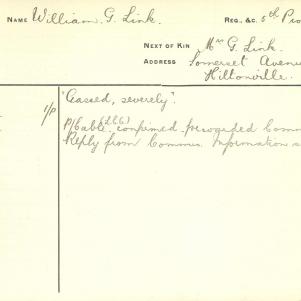 NAME William. G. Link. REG., &C. 5th Pio
NEXT OF KIN Mrs G. Link.
ADDRESS Somerset Avenue
Hiltonville.
"Gassed, severely".
1/P
P/Cable (266) confirmed, forwarded Comm
Reply from Commn. Information s